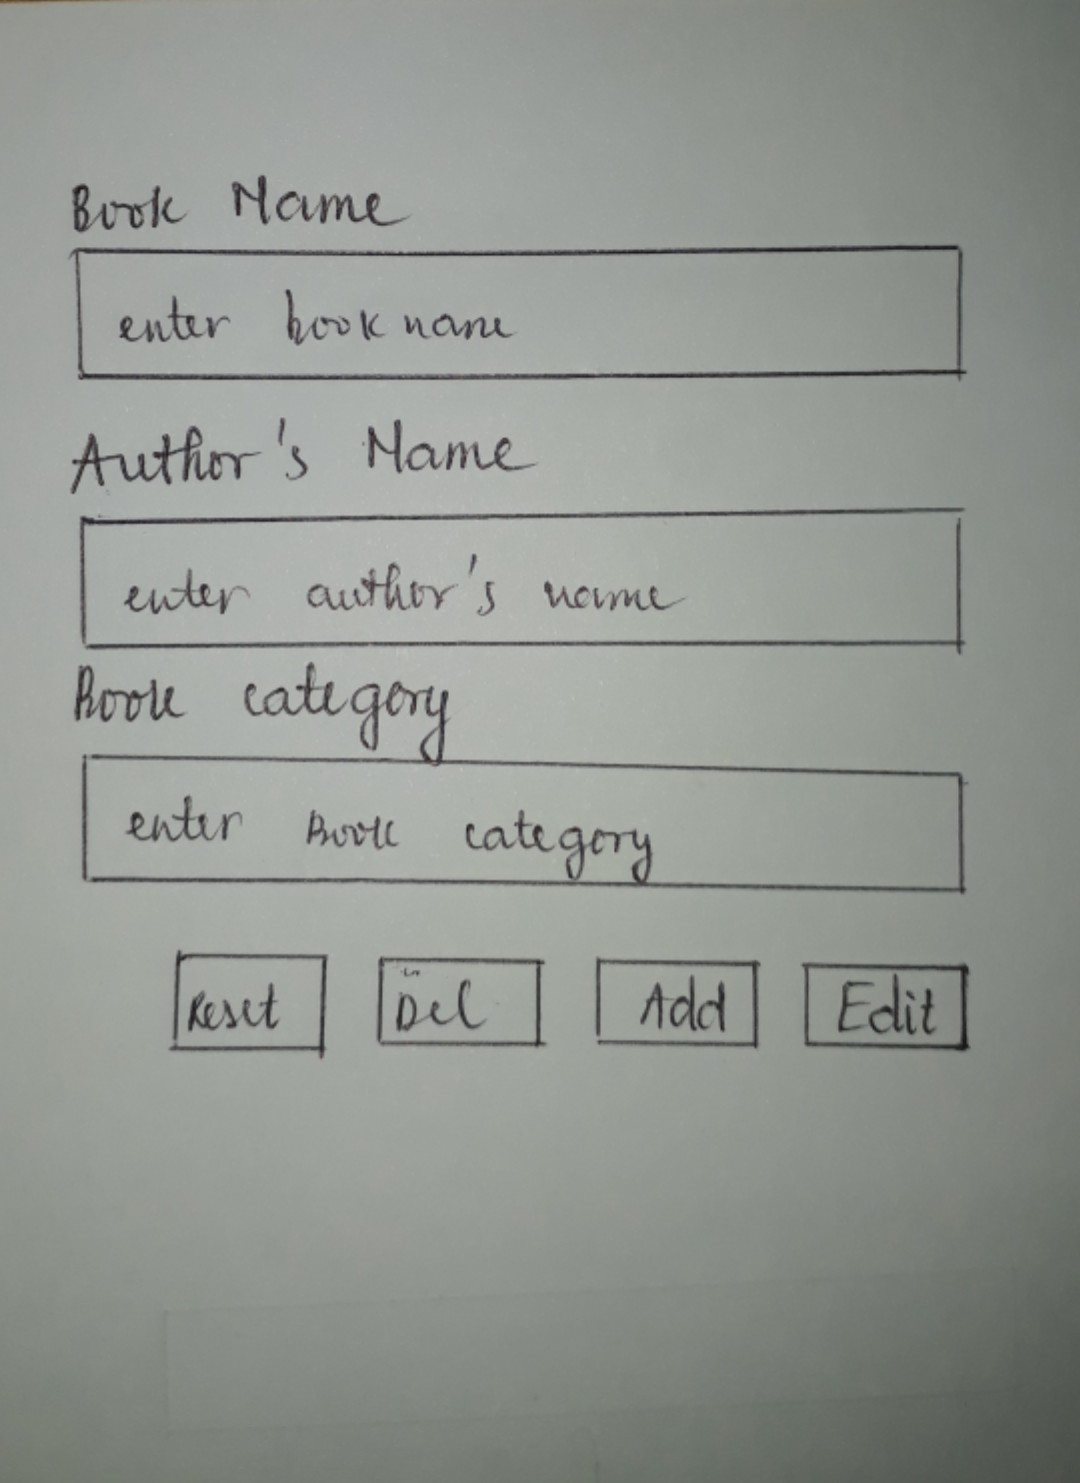 Book Name
enter book name
Author's Name
enter author's name
Book category
enter Book category
Reset Del Add Edit